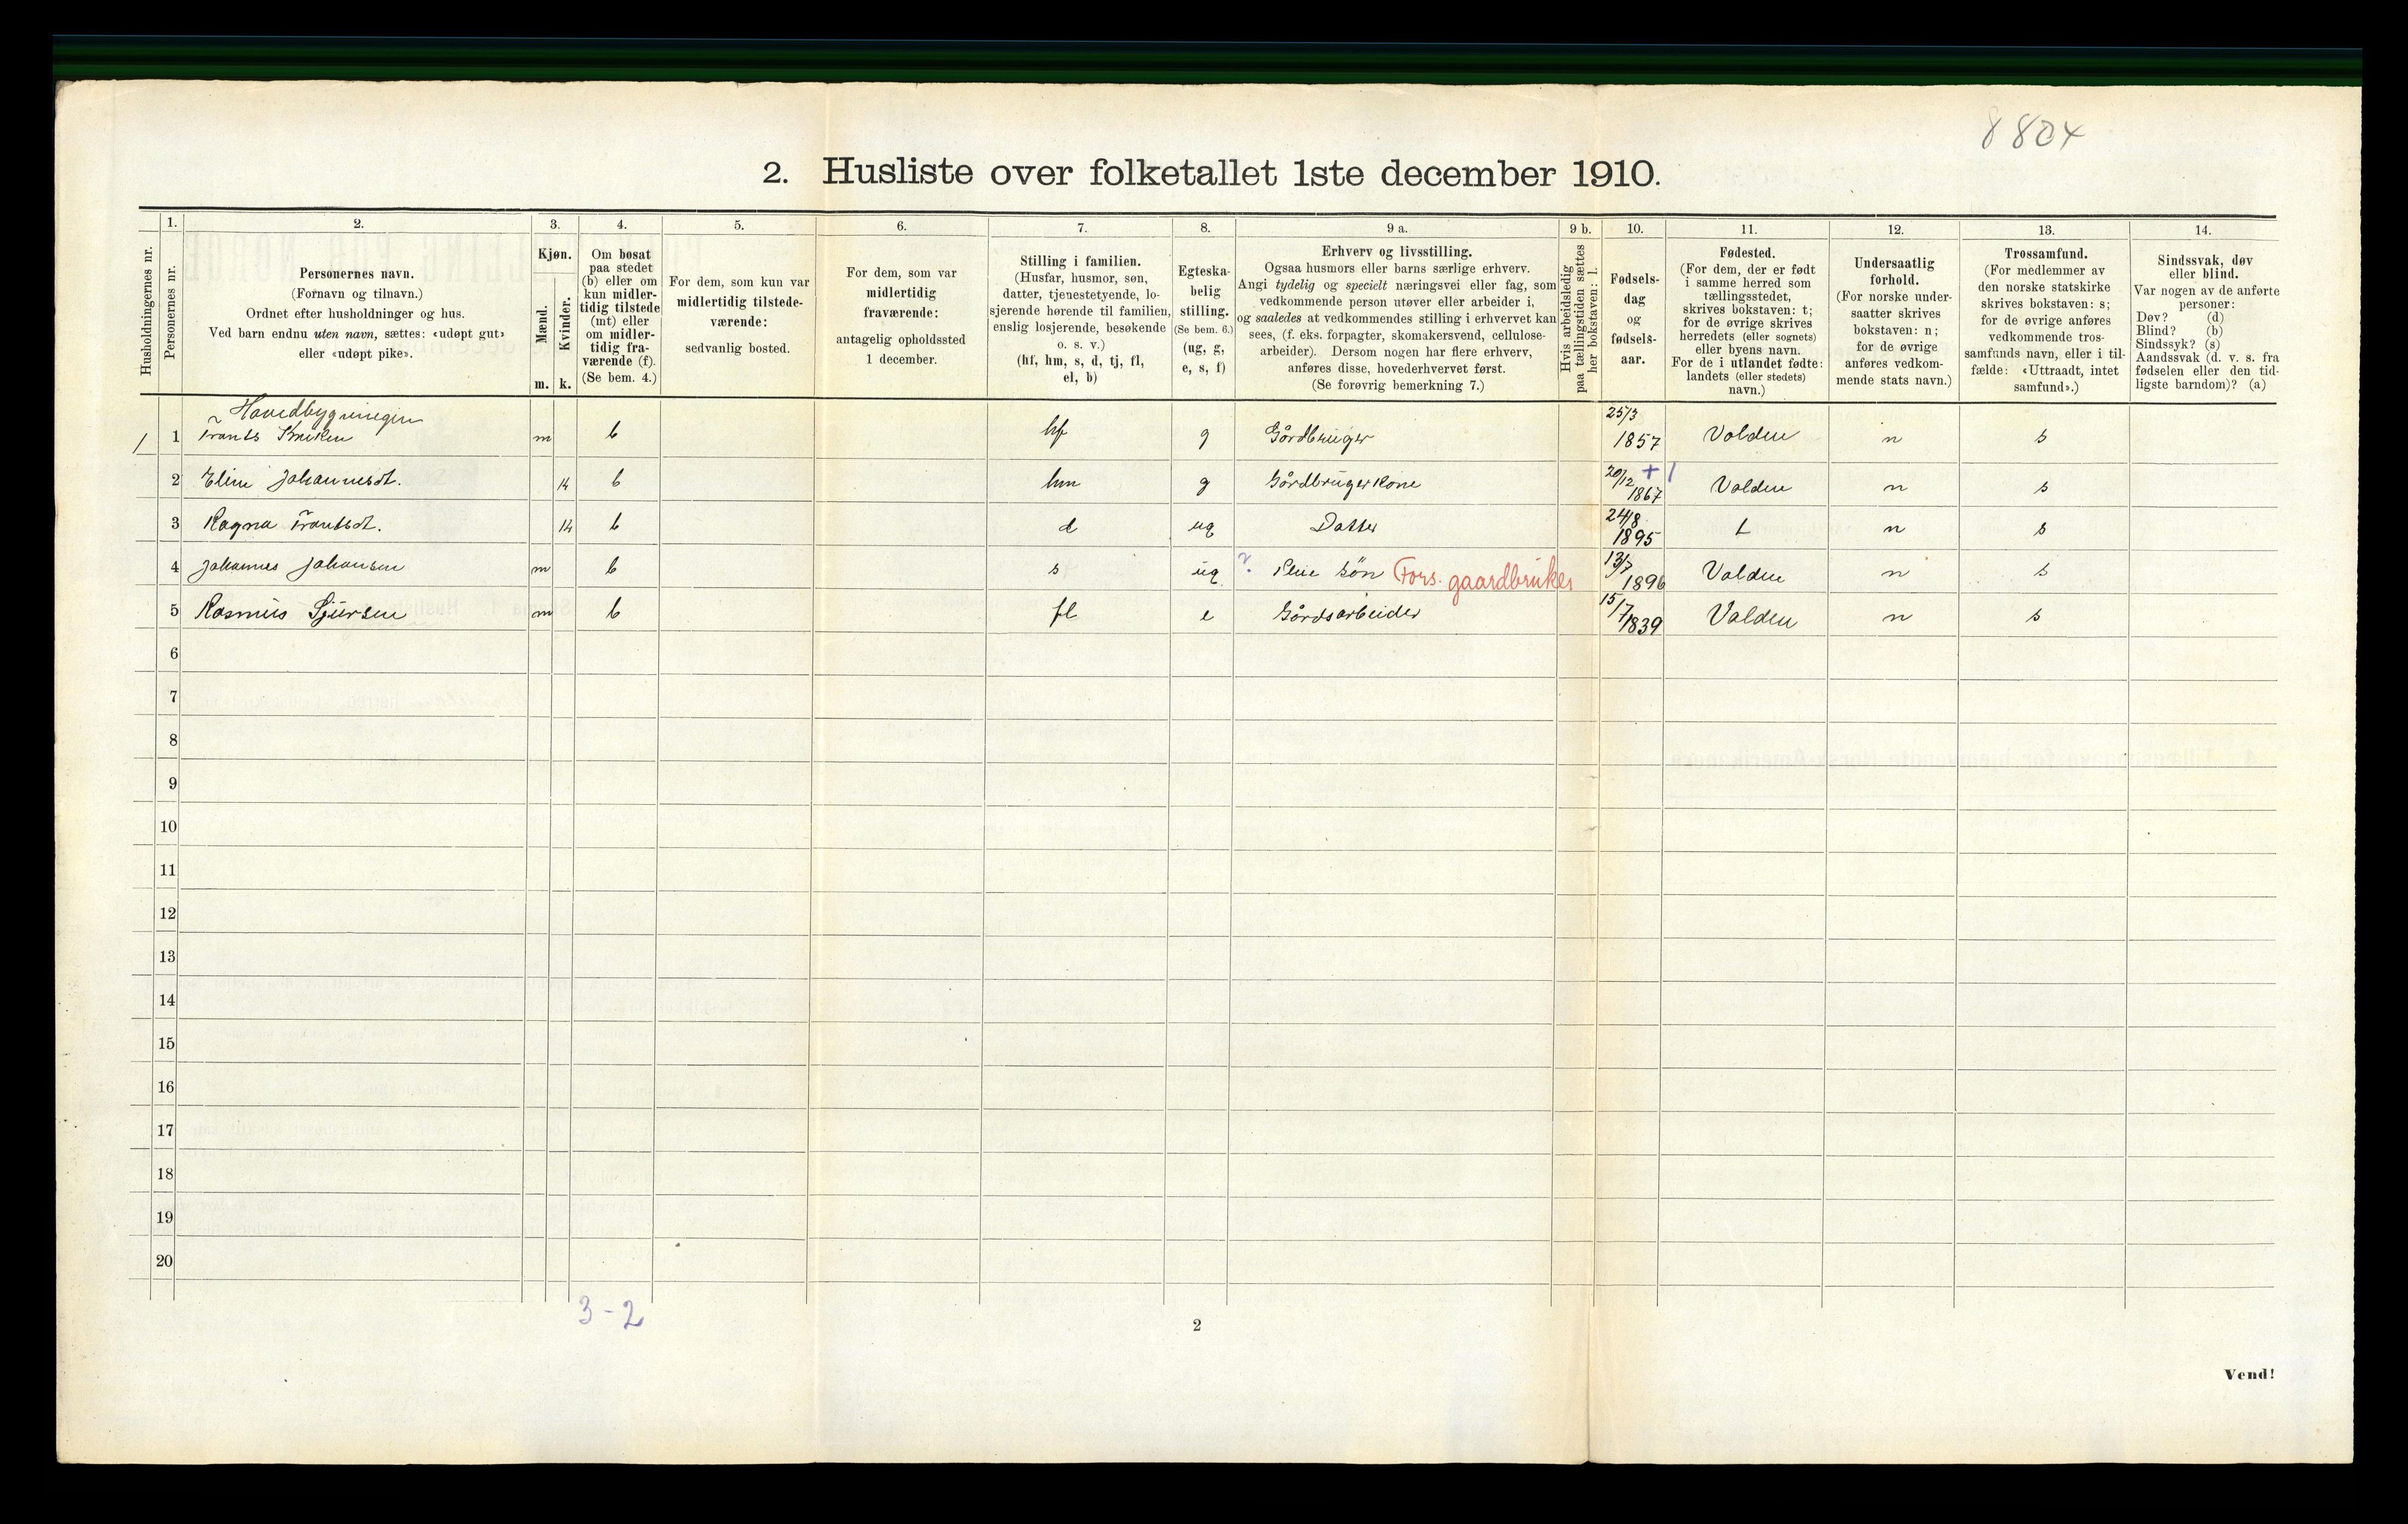 8804
2. Husliste over folketallet 1ste december 1910.
Husholdningernes nr.
1.
Personernes nr.
2.
Personernes navn.
(Fornavn og tilnavn.)
Ordnet efter husholdninger og hus.
Ved barn endnu uten navn, sættes: «udøpt gut»
eller «udøpt pike».
3.
Kjøn.
Mænd.
m.
Kvinder.
k.
4.
Om bosat
paa stedet
(b) eller om
kun midler-
tidig tilstede
(mt) eller
om midler-
tidig fra-
værende (f).
(Se bem. 4.)
5.
For dem, som kun var
midlertidig tilstede-
værende:
sedvanlig bosted.
6.
For dem, som var
midlertidig
fraværende:
antagelig opholdssted
1 december.
7.
Stilling i familien.
(Husfar, husmor, søn,
datter, tjenestetyende, lo-
sjerende hørende til familien,
enslig losjerende, besøkende
o. s. v.)
(hf, hm, s, d, tj, fl,
el, b)
8.
Egteska-
belig
stilling.
(Se bem. 6.)
(ug, g,
e, s, f)
9 a.
Erhverv og livsstilling.
Ogsaa husmors eller barns særlige erhverv.
Angi tydelig og specielt næringsvei eller fag, som
vedkommende person utøver eller arbeider i,
og saaledes at vedkommendes stilling i erhvervet kan
sees, (f. eks. forpagter, skomakersvend, cellulose-
arbeider). Dersom nogen har flere erhverv,
anføres disse, hovederhvervet først.
(Se forøvrig bemerkning 7.)
9 b.
Hvis arbeidsledig
paa tællingstiden sættes
her bokstaven: l.
10.
Fødsels-
dag
og
fødsels-
aar.
11.
Fødested.
(For dem, der er født
i samme herred som
tællingsstedet,
skrives bokstaven: t;
for de øvrige skrives
herredets (eller sognets)
eller byens navn.
For de i utlandet fødte:
landets (eller stedets)
navn.)
12.
Undersaatlig
forhold.
(For norske under-
saatter skrives
bokstaven: n;
for de øvrige
anføres vedkom-
mende stats navn.)
13.
Trossamfund.
(For medlemmer av
den norske statskirke
skrives bokstaven: s;
for de øvrige anføres
vedkommende tros-
samfunds navn, eller i til-
fælde: «Uttraadt, intet
samfund».)
14.
Sindssvak, døv
eller blind.
Var nogen av de anførte
personer:
Døv? (d)
Blind? (b)
Sindssyk? (s)
Aandssvak (d. v. s. fra
fødselen eller den tid-
ligste barndom)? (a)
Hovedbygningen
1 1 Frants m b hf g Gårdbruger 25/3 1857 Volden n s
2 Eline Johannesdt. k b hm g Gårdbrugerkone 20/12 1867 + 1 Volden n s
3 Ragna Frantsdt. k b d ug Datter 24/8 1895 t n s
4 Johannes Johansen m b s ug ? Pleie søn Fors. gaardbruker 13/7 1896 Volden n s
5 Rasmus Sjursen m b fl e Gårdsarbeider 15/7 1839 Volden n s
6
7
8
9
10
11
12
13
14
15
16
17
18
19
20
3 - 2
2
Vend!